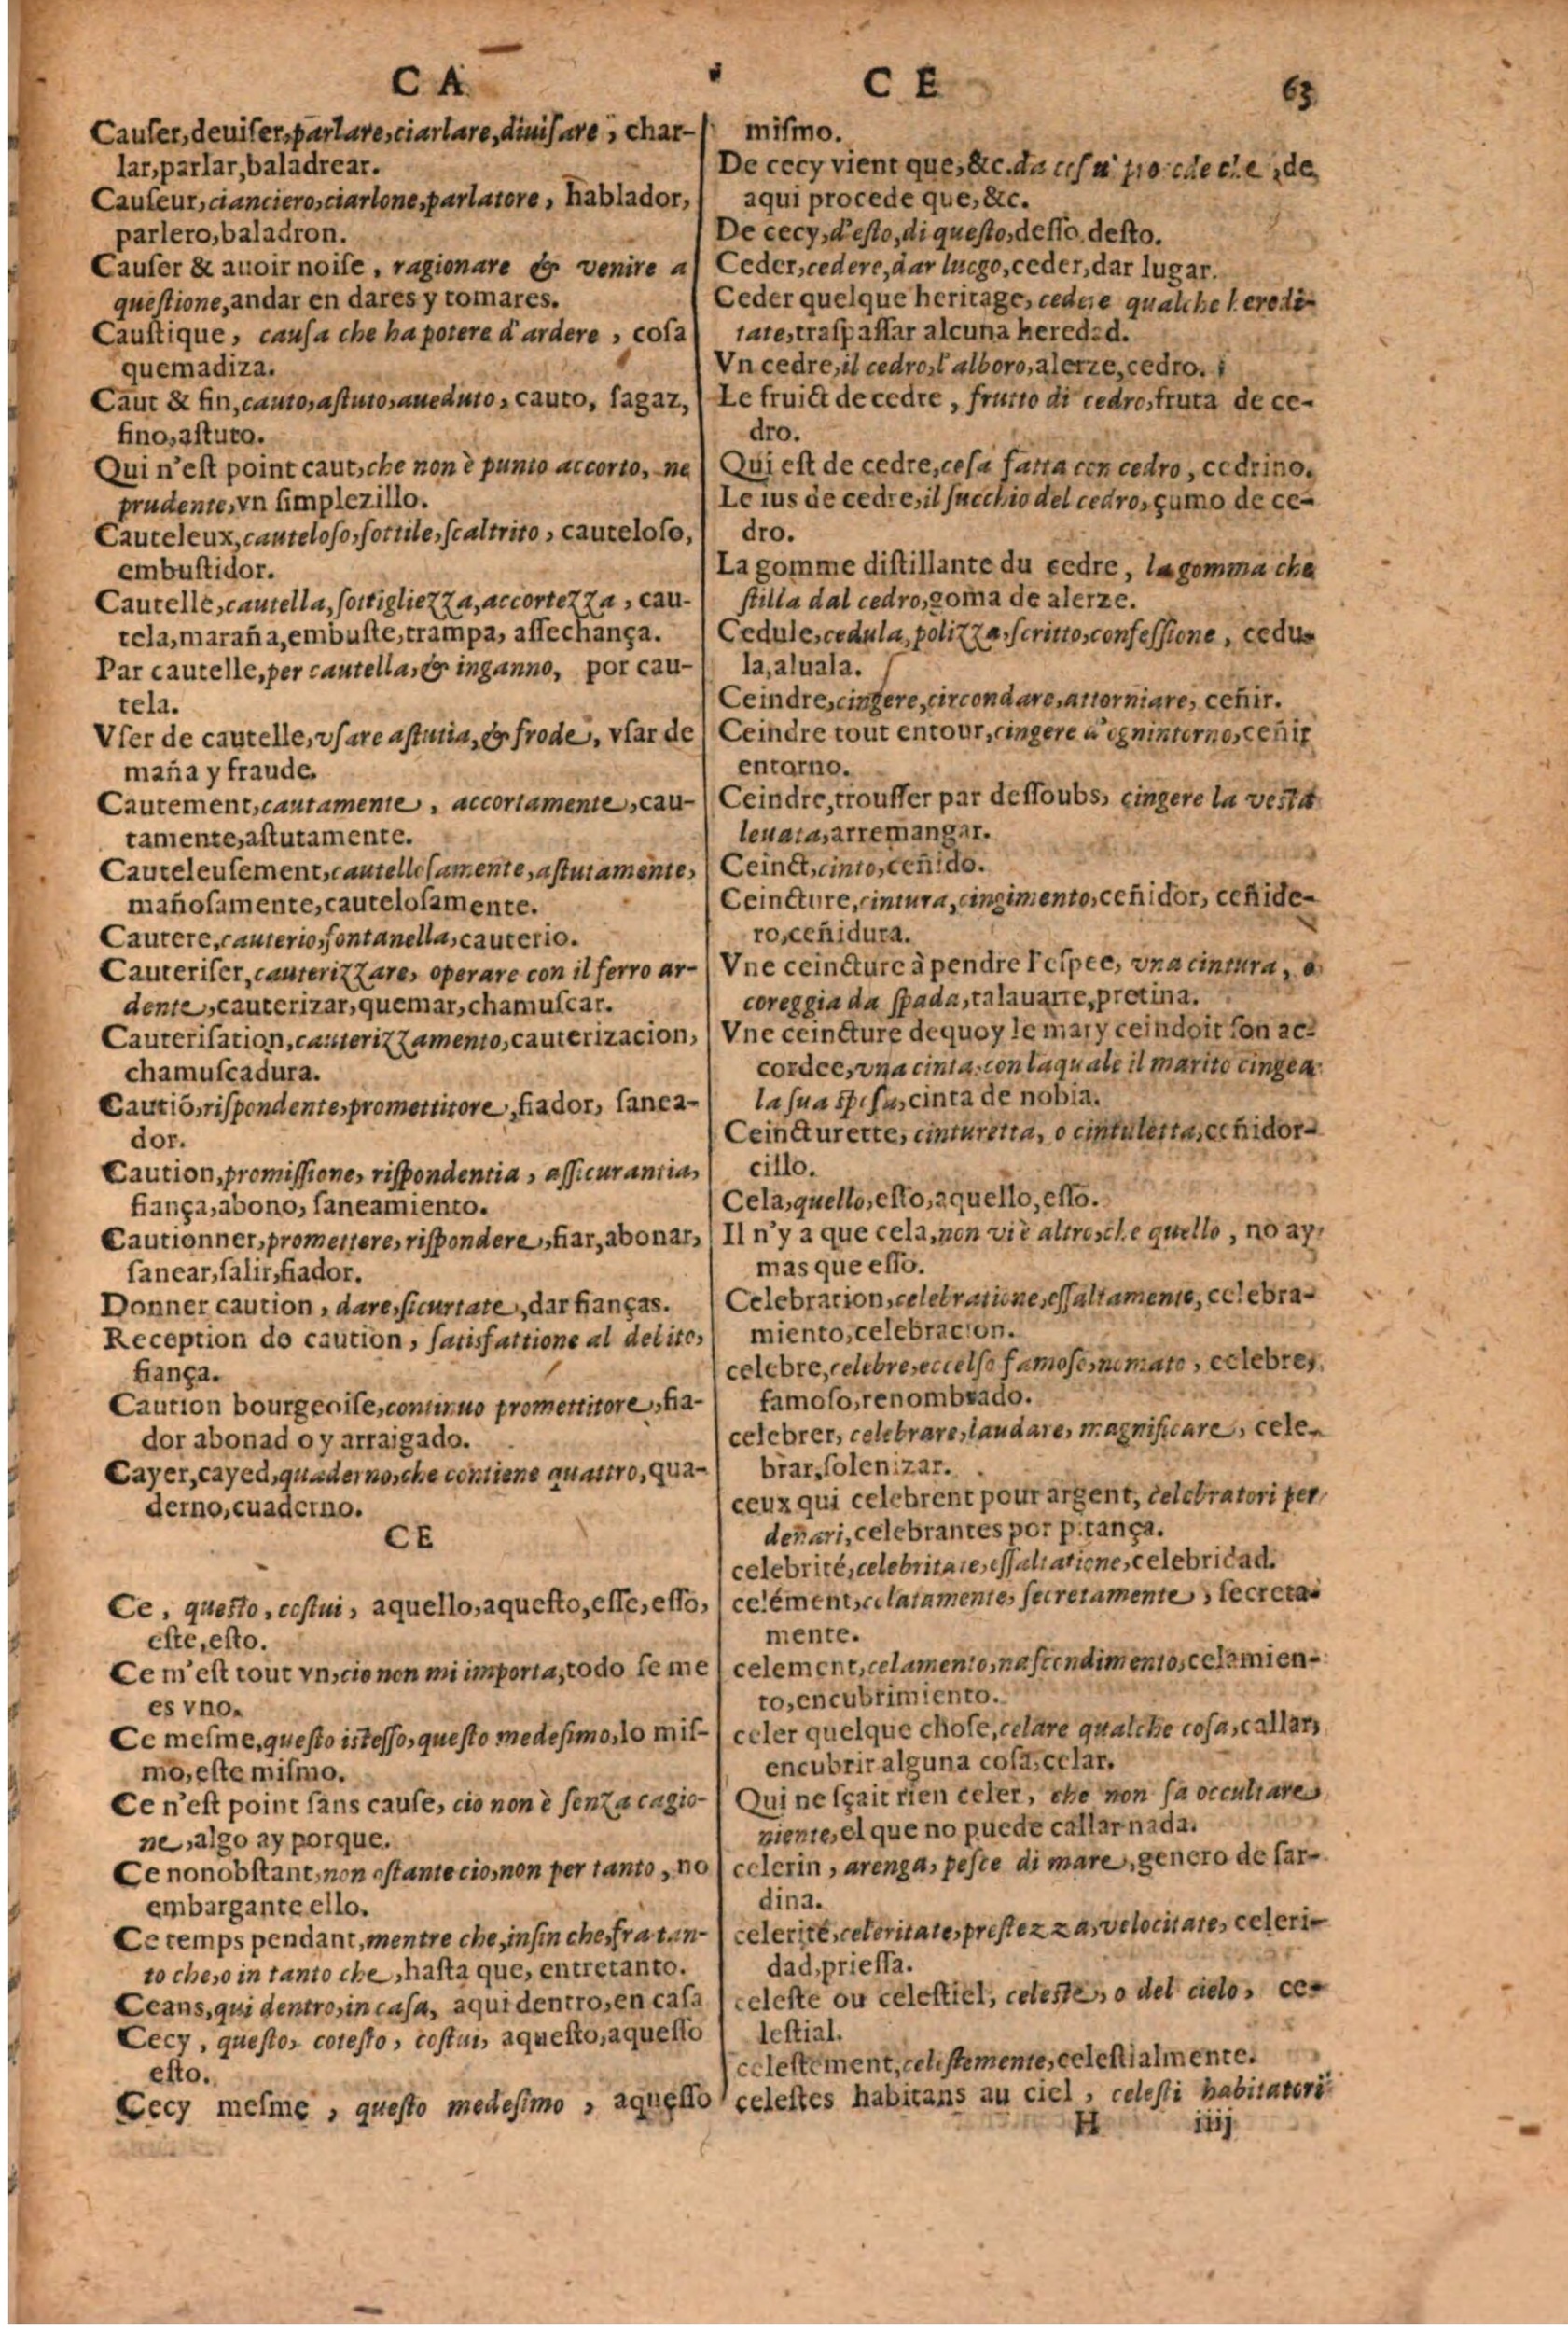 CA
CE
63
Cauſer, deuiſer, parlare, ciarlare, diuiſare, char-
lar, parlar, baladrear.
Cauſeur, cianciero, ciarlone, parlatore, hablador,
parlero, baladron.
Cauſer & auoir noiſe, ragionare & venire a
queſtione, andar en dares y tomares.
Cauſtique, cauſa che ha potere d'ardere, coſa
quemadiza.
Caut & fin, cauto, aſtuto, aueduto, cauto, ſagaz,
fino, aſtuto.
Qui n'eſt point caut, che non è punto accorto, ne
prudente, vn ſimplezillo.
Cauteleux, cauteloſo, ſottile, ſcaltrito, cauteloſo,
embuſtidor.
Cautelle, cautella, ſottigliezza, accortezza, cau-
tela, maraña, embuſte, trampa, aſſechança.
Par cautelle, per cautella, & inganno, por cau-
tela.
Vſer de cautelle, vſare aſtutia, & frode, vſar de
maña y fraude.
Cautement, cautamente, accortamente, cau-
tamente, aſtutamente.
Cauteleuſement, cautelloſamente, aſtutamente,
mañoſamente, cauteloſamente.
Cautere, cauterio, fontanella, cauterio.
Cauteriſer, cauterizzare, operare con il ferro ar-
dente, cauterizar, quemar, chamuſcar.
Cauteriſation, cauterizzamento, cauterizacion,
chamuſcadura.
Cautiõ, riſpondente, promettitore, fiador, ſanea-
dor.
Caution, promiſſione, riſpondentia, aſſicurantia,
fiança, abono, ſaneamiento.
Cautionner, promettere, riſpondere, fiar, abonar,
ſanear, ſalir, fiador.
Donner caution, dare, ſicurtate, dar fianças.
Reception do caution, ſatisfattione al delito,
fiança.
Caution bourgeoiſe, continuo promettitore, fia-
dor abonad o y arraigado.
Cayer, cayed, quaderno, che contiene quattro, qua-
derno, cuaderno.
CE
Ce, queſto, coſtui, aquello, aqueſto, eſſe, eſſo,
eſte, eſto.
Ce m'eſt tout vn, cio non mi importa, todo ſe me
es vno.
Ce meſme, queſto iſteſſo, queſto medeſimo, lo miſ-
mo, eſte miſmo.
Ce n'eſt point ſans cauſe, cio non è ſenza cagio-
ne, algo ay porque.
Ce nonobſtant, non oſtante cio, non per tanto, no
embargante ello.
Ce temps pendant, mentre che, inſin che, fra tan-
to che, o in tanto che, haſta que, entretanto.
Ceans, qui dentro, in caſa, aqui dentro, en caſa
Cecy, queſto, coteſto, coſtui, aqueſto, aqueſſo
eſto.
Cecy meſme, queſto medeſimo, aqueſſo
miſmo.
De cecy vient que, &c. da procede che, de
aqui procede que, &c.
De cecy, d'eſto, di queſto, deſſo, deſto.
Ceder, cedere, dar luogo, ceder, dar lugar.
Ceder quelque heritage, cedere qualche heredi-
tate, traſpaſſar alcuna heredad.
Vn cedre, il cedro, l'alboro, alerze, cedro.
Le fruict de cedre, frutto di cedro, fruta de ce-
dro.
Qui eſt de cedre, coſa fatta con cedro, cedrino.
Le ius de cedre, il ſucchio del cedro, çumo de ce-
dro.
La gomme diſtillante du cedre, la gomma che
ſtilla dal cedro, goma de alerze.
Cedule, cedula, polizza, ſcritto, confeſſione, cedu-
la, aluala.
Ceindre, cingere, circondare, attorniare, ceñir.
Ceindre tout entour, cingere d'ognintorno, ceñir
entorno.
Ceindre, trouſſer par deſſoubs, cingere la veſta
leuata, arremangar.
Ceinct, cinto, ceñido.
Ceincture, cintura, cingimento, ceñidor, ceñide-
ro, ceñidura.
Vne ceincture à pendre l'eſpee, vna cintura, o
coreggia da ſpada, talauarte, pretina.
Vne ceincture dequoy le mary ceindoit ſon ac-
cordee, vna cinta, con laquale il marito cingea
la ſua ſpoſa, cinta de nobia.
Ceincturette, cinturetta, o cintuletta, ceñidor-
cillo.
Cela, quello, eſto, aquello, eſſo.
Il n'y a que cela, non vi è altro, che quello, no ay
mas que eſſo.
Celebration, celebratione, eſſaltamento, celebra-
miento, celebracion.
celebre, celebre, eccelſo famoſo, nomato, celebre,
famoſo, renombrado.
celebrer, celebrare, laudare, magnificare, cele-
brar, ſolenizar.
ceux qui celebrent pour argent, celebratori per
denari, celebrantes por pitança.
celebrité, celebritate, eſſaltatione, celebridad.
celément, celatamente, ſecretamente, ſecreta-
mente.
celement, celamento, naſcondimento, celamien-
to, encubrimiento.
celer quelque choſe, celare qualche coſa, callar,
encubrir alguna coſa, celar.
Qui ne ſçait rien celer, che non ſa occultare
niente, el que no puede callar nada.
celerin, arenga, peſce di mare, genero de ſar-
dina.
celerité, celeritate, preſtezza, velocitate, celeri-
dad, prieſſa.
celeſte ou celeſtiel, celeſte, o del cielo, ce-
leſtial.
celeſtement, celeſtemente, celeſtialmente.
celeſtes habitans au ciel, celeſti habitatori
H iiij